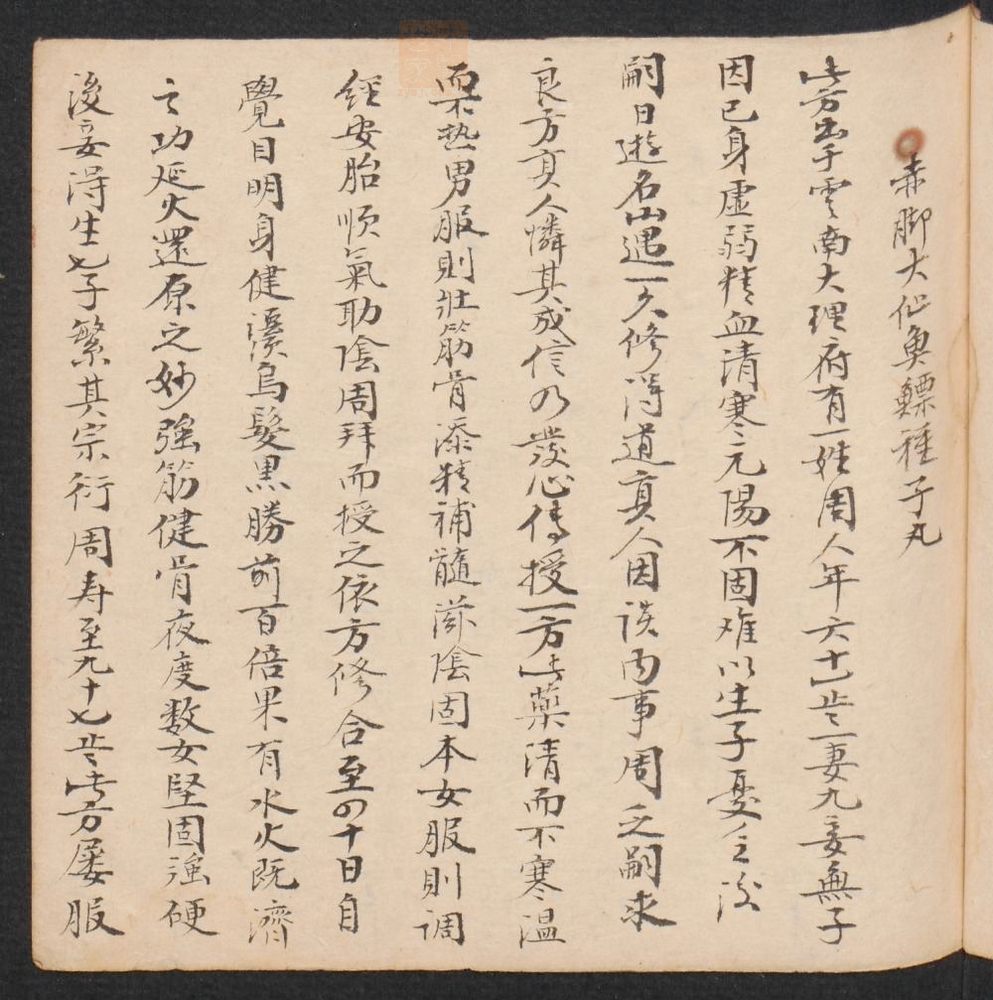 赤脚大仙魚鰾種子丸
此方出于雲南大理府有一姓周人年六十一岁一妻九妾無子
因己身虛弱精血清寒元陽不固难以生子憂之没
嗣日遊名山遇一久修得道真人因谈内事周之嗣求
良方真人憐其成信乃發心傳授一方此藥清而不寒温
而不熱男服則壯筋骨添精補髓滋陰固本女服則调
經安胎順氣助陰周拜而授之依方修合至四十日自
覺目明身健湏烏髮黒勝前百倍果有水火既濟
之功延火還原之妙強筋健骨夜度数女堅固強硬
後妾得生七子繁其宗衍周寿至九十七岁此方屡服